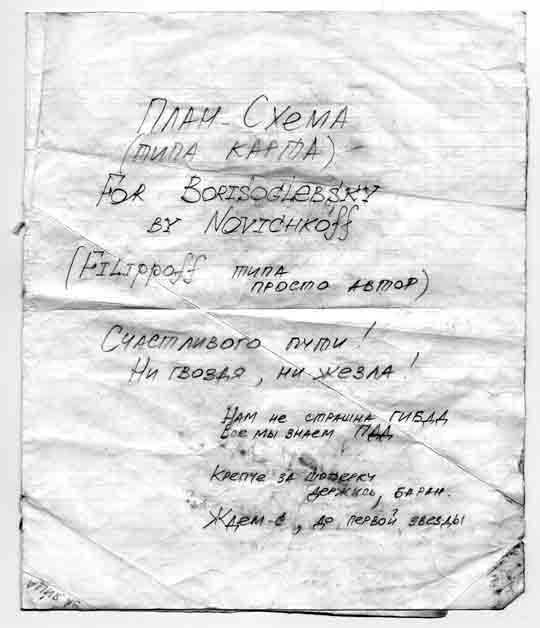 План-Схема
(типа карта)
For Borisoglebsky
by Novichkoff
(Filippoff типа
просто автор)
Счастливого пути!
Ни гвоздя, ни жезла!
Нам не страшна ГИБДД
Все мы знаем ПДД
Крепче за шоферку
держись, баран.
Ждем-с, до первой звезды